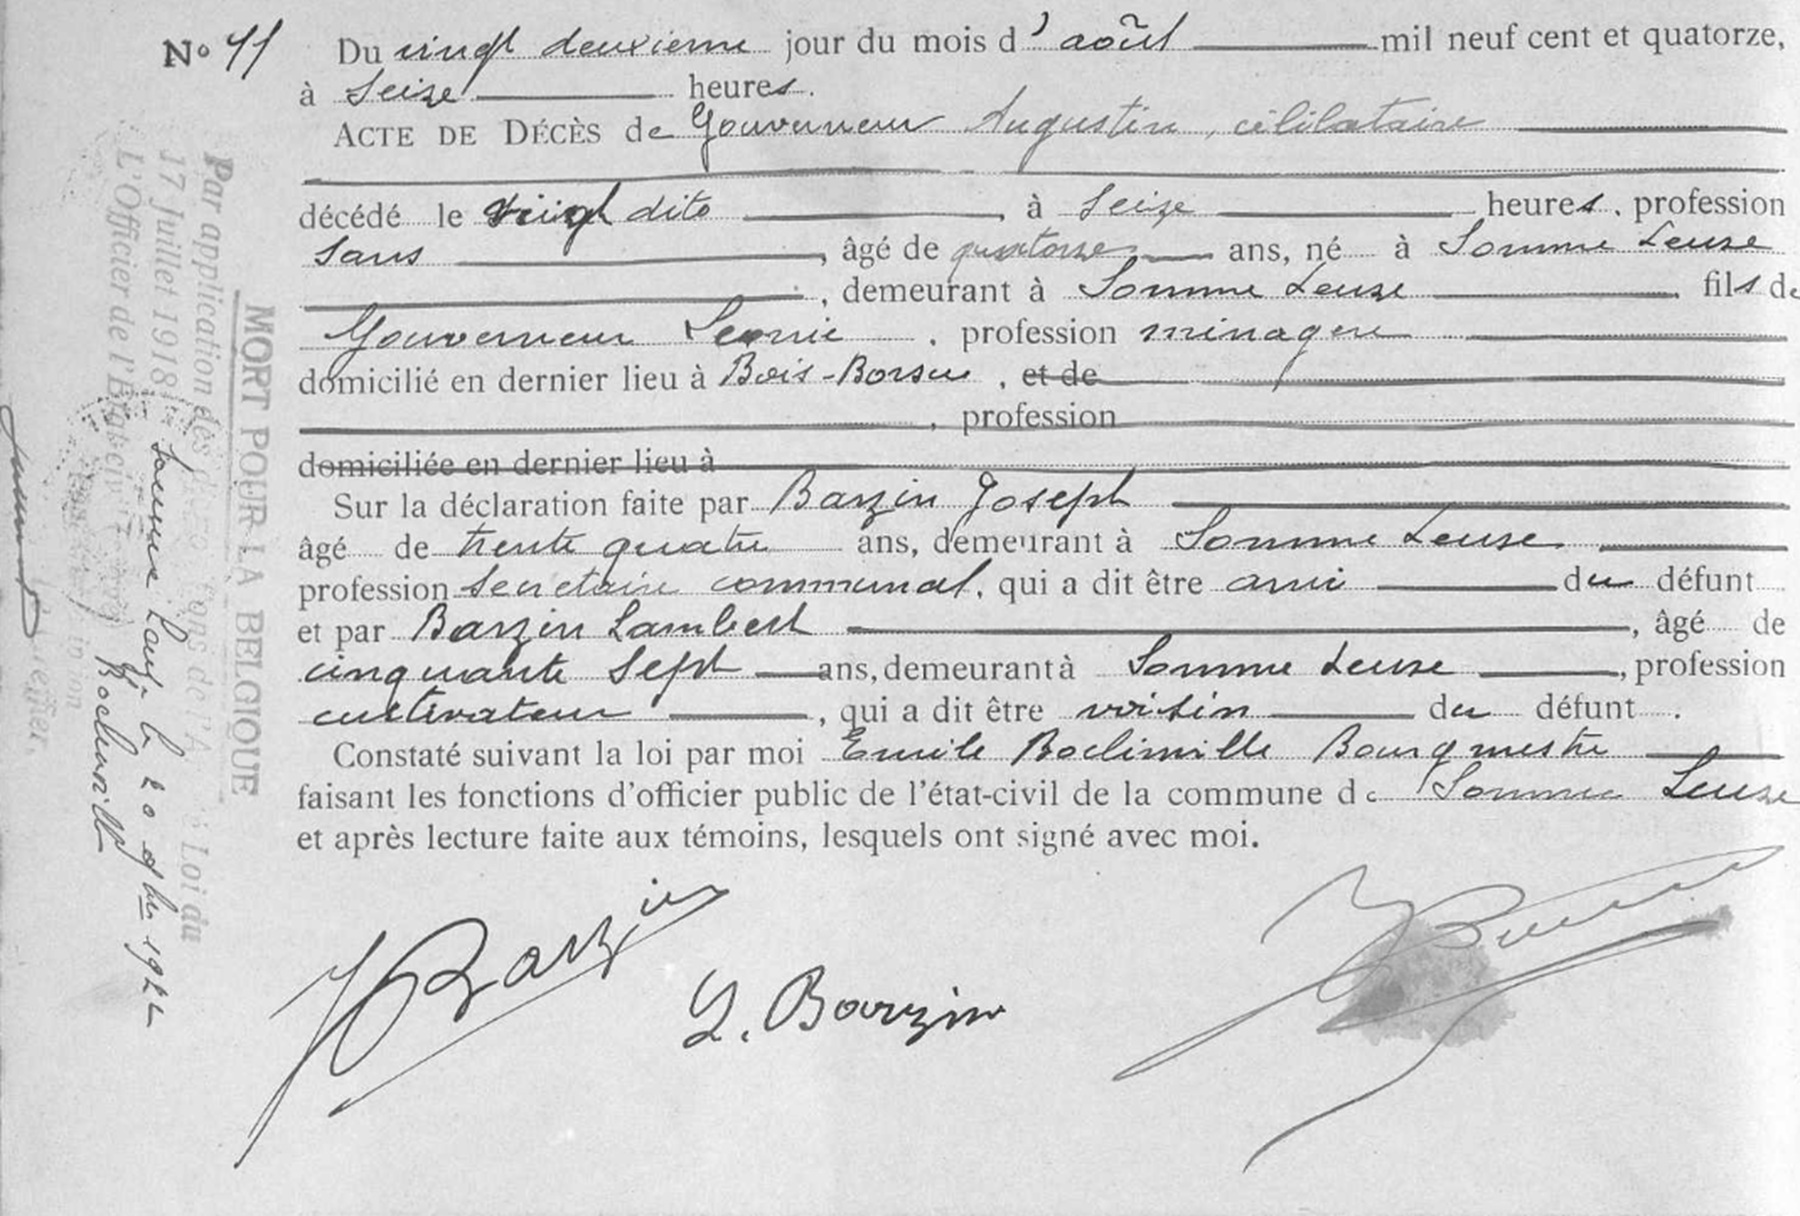 N° 11
Du vingt deuxieme jour du mois d' août mil neuf cent et quatorze,
à Seize heures.
ACTE DE DÉCÈS de Gouverneur Augustin, célibataire
décédé le vingt dito, à Seize heures, profession
Sans, âgé de quatorze ans, né à Somme Leuze
, demeurant à Somme Leuze fils de
Gouverneur Leonie, profession ménagere
domicilié en dernier lieu à Bois-Borsu, et de
, profession
domiciliée en dernier lieu à
Sur la déclaration faite par Barzin Joseph
âgé de trente quatre ans, demeurant à Somme Leuze
profession Secretaire communal, qui a dit être ami du défunt
et par Barzin Lambert, âgé de
cinquante Sept ans, demeurant à Somme Leuze, profession
cultivateur, qui a dit être voisin du défunt.
Constaté suivant la loi par moi Emile Bourgmestre
faisant les fonctions d'officier public de l'état-civil de la commune de Somme Leuze
et après lecture faite aux témoins, lesquels ont signé avec moi.
J Barzin
L. Barzin
MORT POUR LA BELGIQUE
Par application des de l'A à Loi du
17 Juillet 1918
L'Officier de l'État civil
Somme Leuze le 20 9bre 1922